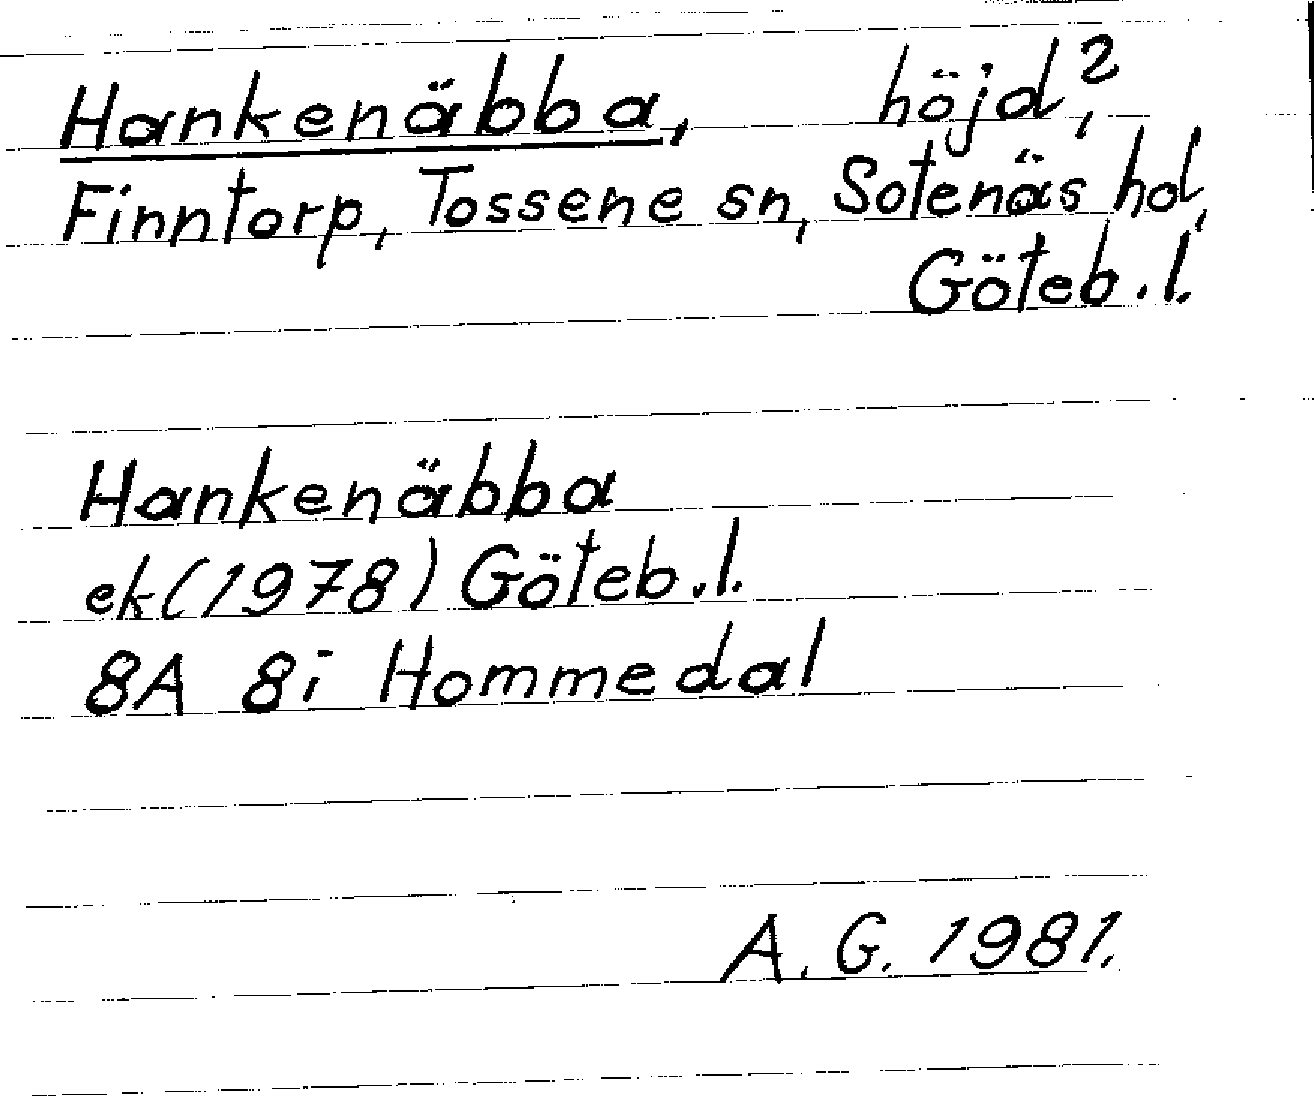 Hankenäbba, höjd?,
Finntorp, Tossene sn, Sotenäs hd,
Göteb. l.
Hankenäbba
ek (1978) Göteb. l.
8A 8i Hommedal
A. G. 1981.